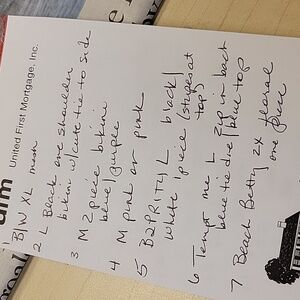 ufm
United First Mortgage, Inc.
1 B/W XL mesh
2 L Black one shoulder
bikini w/cute tie to side
3 M 2 piece bikini
blue/purple
4 M pink or pink
5 B2PRITY L black/
white 1 piece (stripes at
top)
6 Tempt me L Zip in back
blue tie die/blue top
7 Beach Betty 2x floral
one piece